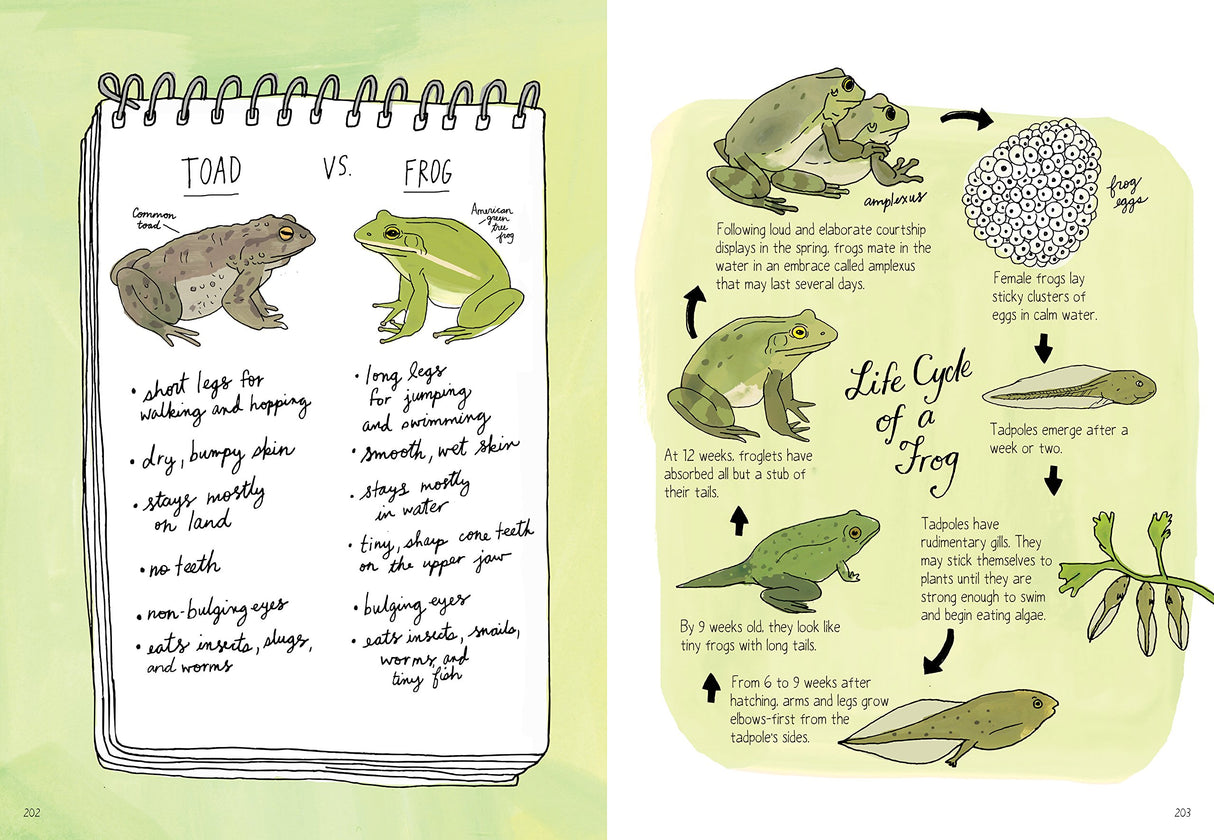 TOAD VS. FROG
Common
toad
American
green
tree
frog
• short legs for
walking and hopping
• dry, bumpy skin
• stays mostly
on land
• no teeth
• non-bulging eyes
• eats insects, slugs,
and worms
• long legs
for jumping
and swimming
• smooth, wet skin
• stays mostly
in water
• tiny, sharp cone teeth
on the upper jaw
• bulging eyes
• eats insects, snails,
worms, and
tiny fish
202
amplexus
Following loud and elaborate courtship
displays in the spring, frogs mate in the
water in an embrace called amplexus
that may last several days.
frog
eggs
Female frogs lay
sticky clusters of
eggs in calm water.
Life Cycle
of a
Frog
Tadpoles emerge after a
week or two.
Tadpoles have
rudimentary gills. They
may stick themselves to
plants until they are
strong enough to swim
and begin eating algae.
From 6 to 9 weeks after
hatching, arms and legs grow
elbows-first from the
tadpole's sides.
By 9 weeks old, they look like
tiny frogs with long tails.
At 12 weeks, froglets have
absorbed all but a stub of
their tails.
203